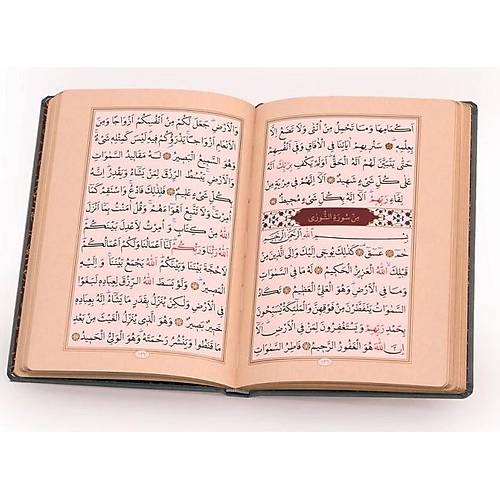 اَكْمَامِهَا وَمَا تَحْمِلُ مِنْ اُنْثٰى وَلَا تَضَعُ اِلَّا
بِعِلْمِهٖ ۞ سَنُرٖيهِمْ اٰيَاتِنَا فِى الْاٰفَاقِ وَفٖٓى اَنْفُسِهِمْ
حَتّٰى يَتَبَيَّنَ لَهُمْ اَنَّهُ الْحَقُّ اَوَلَمْ يَكْفِ بِرَبِّكَ اَنَّهُ
عَلٰى كُلِّ شَىْءٍ شَهٖيدٌ ۞ اَلَٓا اِنَّهُمْ فٖى مِرْيَةٍ مِنْ
لِقَٓاءِ رَبِّهِمْ اَلَٓا اِنَّهُ بِكُلِّ شَىْءٍ مُحٖيطٌ ۞
مِنْ سُورَةِ الشُّورٰى
بِسْمِ اللّٰهِ الرَّحْمٰنِ الرَّحٖيمِ
حٰمٓ ۞ عٓسٓقٓ ۞ كَذٰلِكَ يُوحٖٓى اِلَيْكَ وَاِلَى الَّذٖينَ مِنْ
قَبْلِكَ اللّٰهُ الْعَزٖيزُ الْحَكٖيمُ ۞ لَهُ مَا فِى السَّمٰوَاتِ
وَمَا فِى الْاَرْضِ وَهُوَ الْعَلِىُّ الْعَظٖيمُ ۞ تَكَادُ
السَّمٰوَاتُ يَتَفَطَّرْنَ مِنْ فَوْقِهِنَّ وَالْمَلٰٓئِكَةُ يُسَبِّحُونَ
بِحَمْدِ رَبِّهِمْ وَيَسْتَغْفِرُونَ لِمَنْ فِى الْاَرْضِ اَلَٓا
اِنَّ اللّٰهَ هُوَ الْغَفُورُ الرَّحٖيمُ ۞ فَاطِرُ السَّمٰوَاتِ
وَالْاَرْضِ جَعَلَ لَكُمْ مِنْ اَنْفُسِكُمْ اَزْوَاجًا وَمِنَ
الْاَنْعَامِ اَزْوَاجًا يَذْرَؤُكُمْ فٖيهِ لَيْسَ كَمِثْلِهٖ شَىْءٌ
وَهُوَ السَّمٖيعُ الْبَصٖيرُ ۞ لَهُ مَقَالٖيدُ السَّمٰوَاتِ
وَالْاَرْضِ يَبْسُطُ الرِّزْقَ لِمَنْ يَشَٓاءُ وَيَقْدِرُ اِنَّهُ
بِكُلِّ شَىْءٍ عَلٖيمٌ ۞ فَلِذٰلِكَ فَادْعُ وَاسْتَقِمْ كَمَٓا
اُمِرْتَ وَلَا تَتَّبِعْ اَهْوَٓاءَهُمْ وَقُلْ اٰمَنْتُ بِمَٓا اَنْزَلَ
اللّٰهُ مِنْ كِتَابٍ وَاُمِرْتُ لِاَعْدِلَ بَيْنَكُمْ
اَللّٰهُ رَبُّنَا وَرَبُّكُمْ لَنَٓا اَعْمَالُنَا وَلَكُمْ اَعْمَالُكُمْ
لَا حُجَّةَ بَيْنَنَا وَبَيْنَكُمْ اَللّٰهُ يَجْمَعُ بَيْنَنَا وَاِلَيْهِ
الْمَصٖيرُ ۞ وَلَوْ بَسَطَ اللّٰهُ الرِّزْقَ لِعِبَادِهٖ لَبَغَوْا
فِى الْاَرْضِ وَلٰكِنْ يُنَزِّلُ بِقَدَرٍ مَا يَشَٓاءُ اِنَّهُ بِعِبَادِهٖ
خَبٖيرٌ بَصٖيرٌ ۞ وَهُوَ الَّذٖى يُنَزِّلُ الْغَيْثَ مِنْ بَعْدِ
مَا قَنَطُوا وَيَنْشُرُ رَحْمَتَهُ وَهُوَ الْوَلِىُّ الْحَمٖيدُ ۞